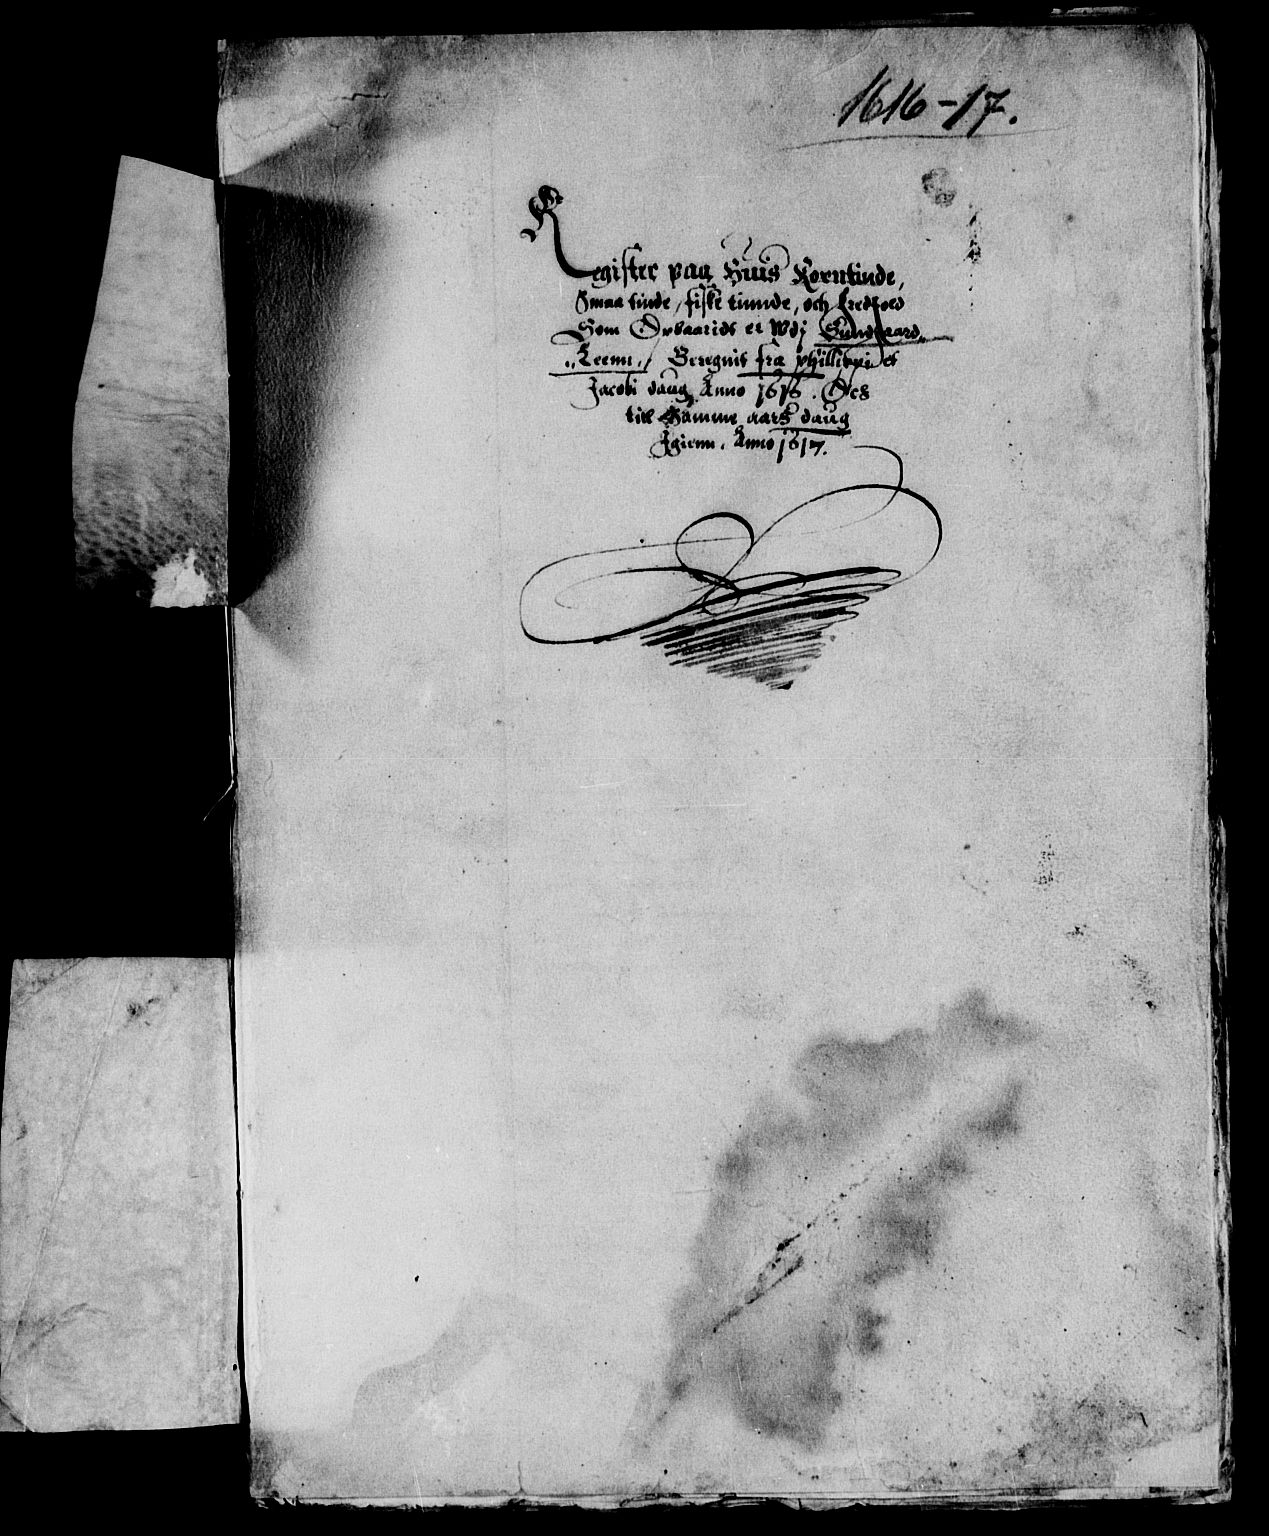 1616-17.
Register paa Huis Kornntinde,
Smaa tinde, fiske tiinnde, och
Som Opbaaridt er Wdj Sundgaard
Leenn, Beregnit fra phillippi et
Jacobi daug Anno 1616. Och
till Samme aars daug
Jgienn. Anno 1617.